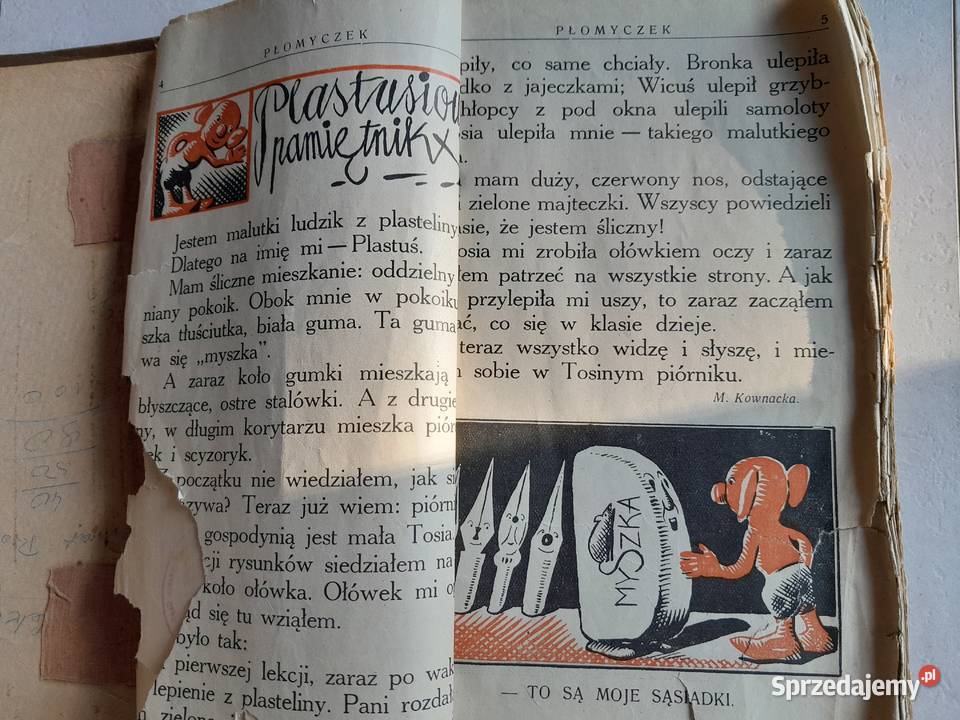 PŁOMYCZEK
4
Plastusiow
pamiętnik
Jestem malutki ludzik z plasteliny
Dlatego na imię mi — Plastuś.
Mam śliczne mieszkanie: oddzielny
niany pokoik. Obok mnie w pokoiku
szka tłuściutka, biała guma. Ta guma
wa się „myszka”.
A zaraz koło gumki mieszkają
błyszczące, ostre stalówki. A z drugie
ny, w długim korytarzu mieszka piór
ek i scyzoryk.
początku nie wiedziałem, jak si
zywa? Teraz już wiem: piórni
gospodynią jest mała Tosia.
cji rysunków siedziałem na
koło ołówka. Ołówek mi o
d się tu wziąłem.
było tak:
pierwszej lekcji, zaraz po wak
lepienie z plasteliny. Pani rozdał
zielone
PŁOMYCZEK
5
piły, co same chciały. Bronka ulepiła
dko z jajeczkami; Wicuś ulepił grzyb-
hłopcy z pod okna ulepili samoloty
sia ulepiła mnie — takiego malutkiego
a.
mam duży, czerwony nos, odstające
i zielone majteczki. Wszyscy powiedzieli
asie, że jestem śliczny!
osia mi zrobiła ołówkiem oczy i zaraz
łem patrzeć na wszystkie strony. A jak
przylepiła mi uszy, to zaraz zacząłem
ać, co się w klasie dzieje.
teraz wszystko widzę i słyszę, i mie-
sobie w Tosinym piórniku.
M. Kownacka.
MYSZKA
— TO SĄ MOJE SĄSIADKI.
Sprzedajemy.pl